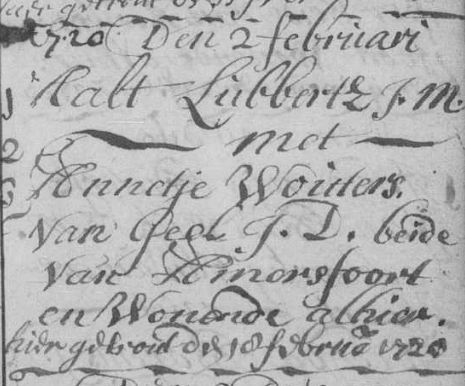 1720 Den 2 februari
Aalt Lubbertz J. M.
met
Annetje Wouters.
van Geel J. D. beide
van Amersfoort
en Wonende alhier.
hier getrout den 18 februa 1720